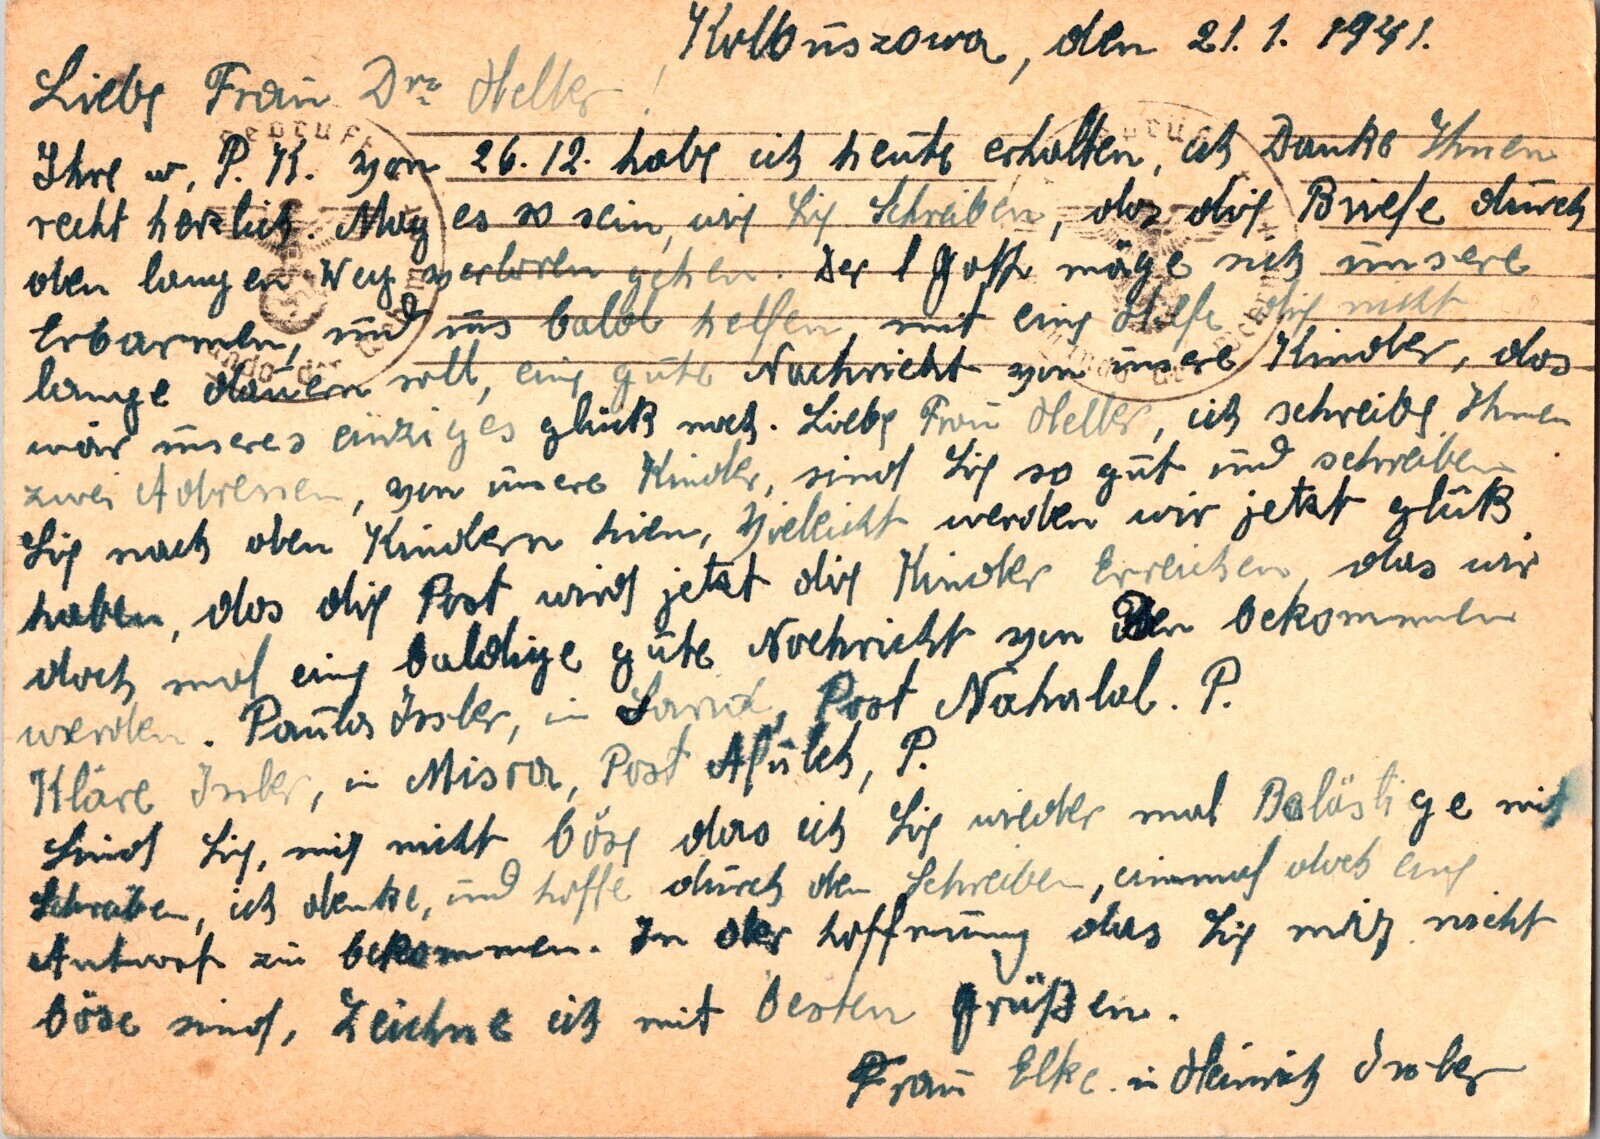 Kolbuszowa, den 21.1.1941.
Liebe Frau Dr. Heller!
Ihre w. P.K. von 26.12. habe ich heute erhalten, ich Danke Ihnen
recht herzlich. Mag es so sein, wie Sie Schreiben, das die Briefe durch
den langen Weg verloren gehen. Der l Gott möge sich unsere
Erbarmen, und uns bald helfen, mit eine Hilfe die nicht
lange dauern soll, eine gute Nachricht von unsere Kinder, das
wär unseres einziges glück noch. Liebe Frau Heller, ich schreibe Ihnen
zwei Adressen, von unsere Kinder, sind Sie so gut und schreiben
Sie nach den Kindern hien, vieleicht werden wir jetzt glück
haben, das die Post wird jetzt die Kinder Erreichen, das wir
doch mal eine baldige gute Nachricht von Den bekommen
werden. Paula Issler, in Post Nahalal. P.
Kläre Issler, in Misra, Post Afuleh, P.
Sind Sie, mir nicht böse das ich Sie wieder mal Belästige mit
Schreiben, ich denke, und hoffe durch den Schreiben, einmal doch eine
Antwort zu bekommen. In der hoffnung das Sie mir nicht
böse sind, Zeichne ich mit besten grüßen.
Frau Elke u Heinrich Issler
geprüft
geprüft